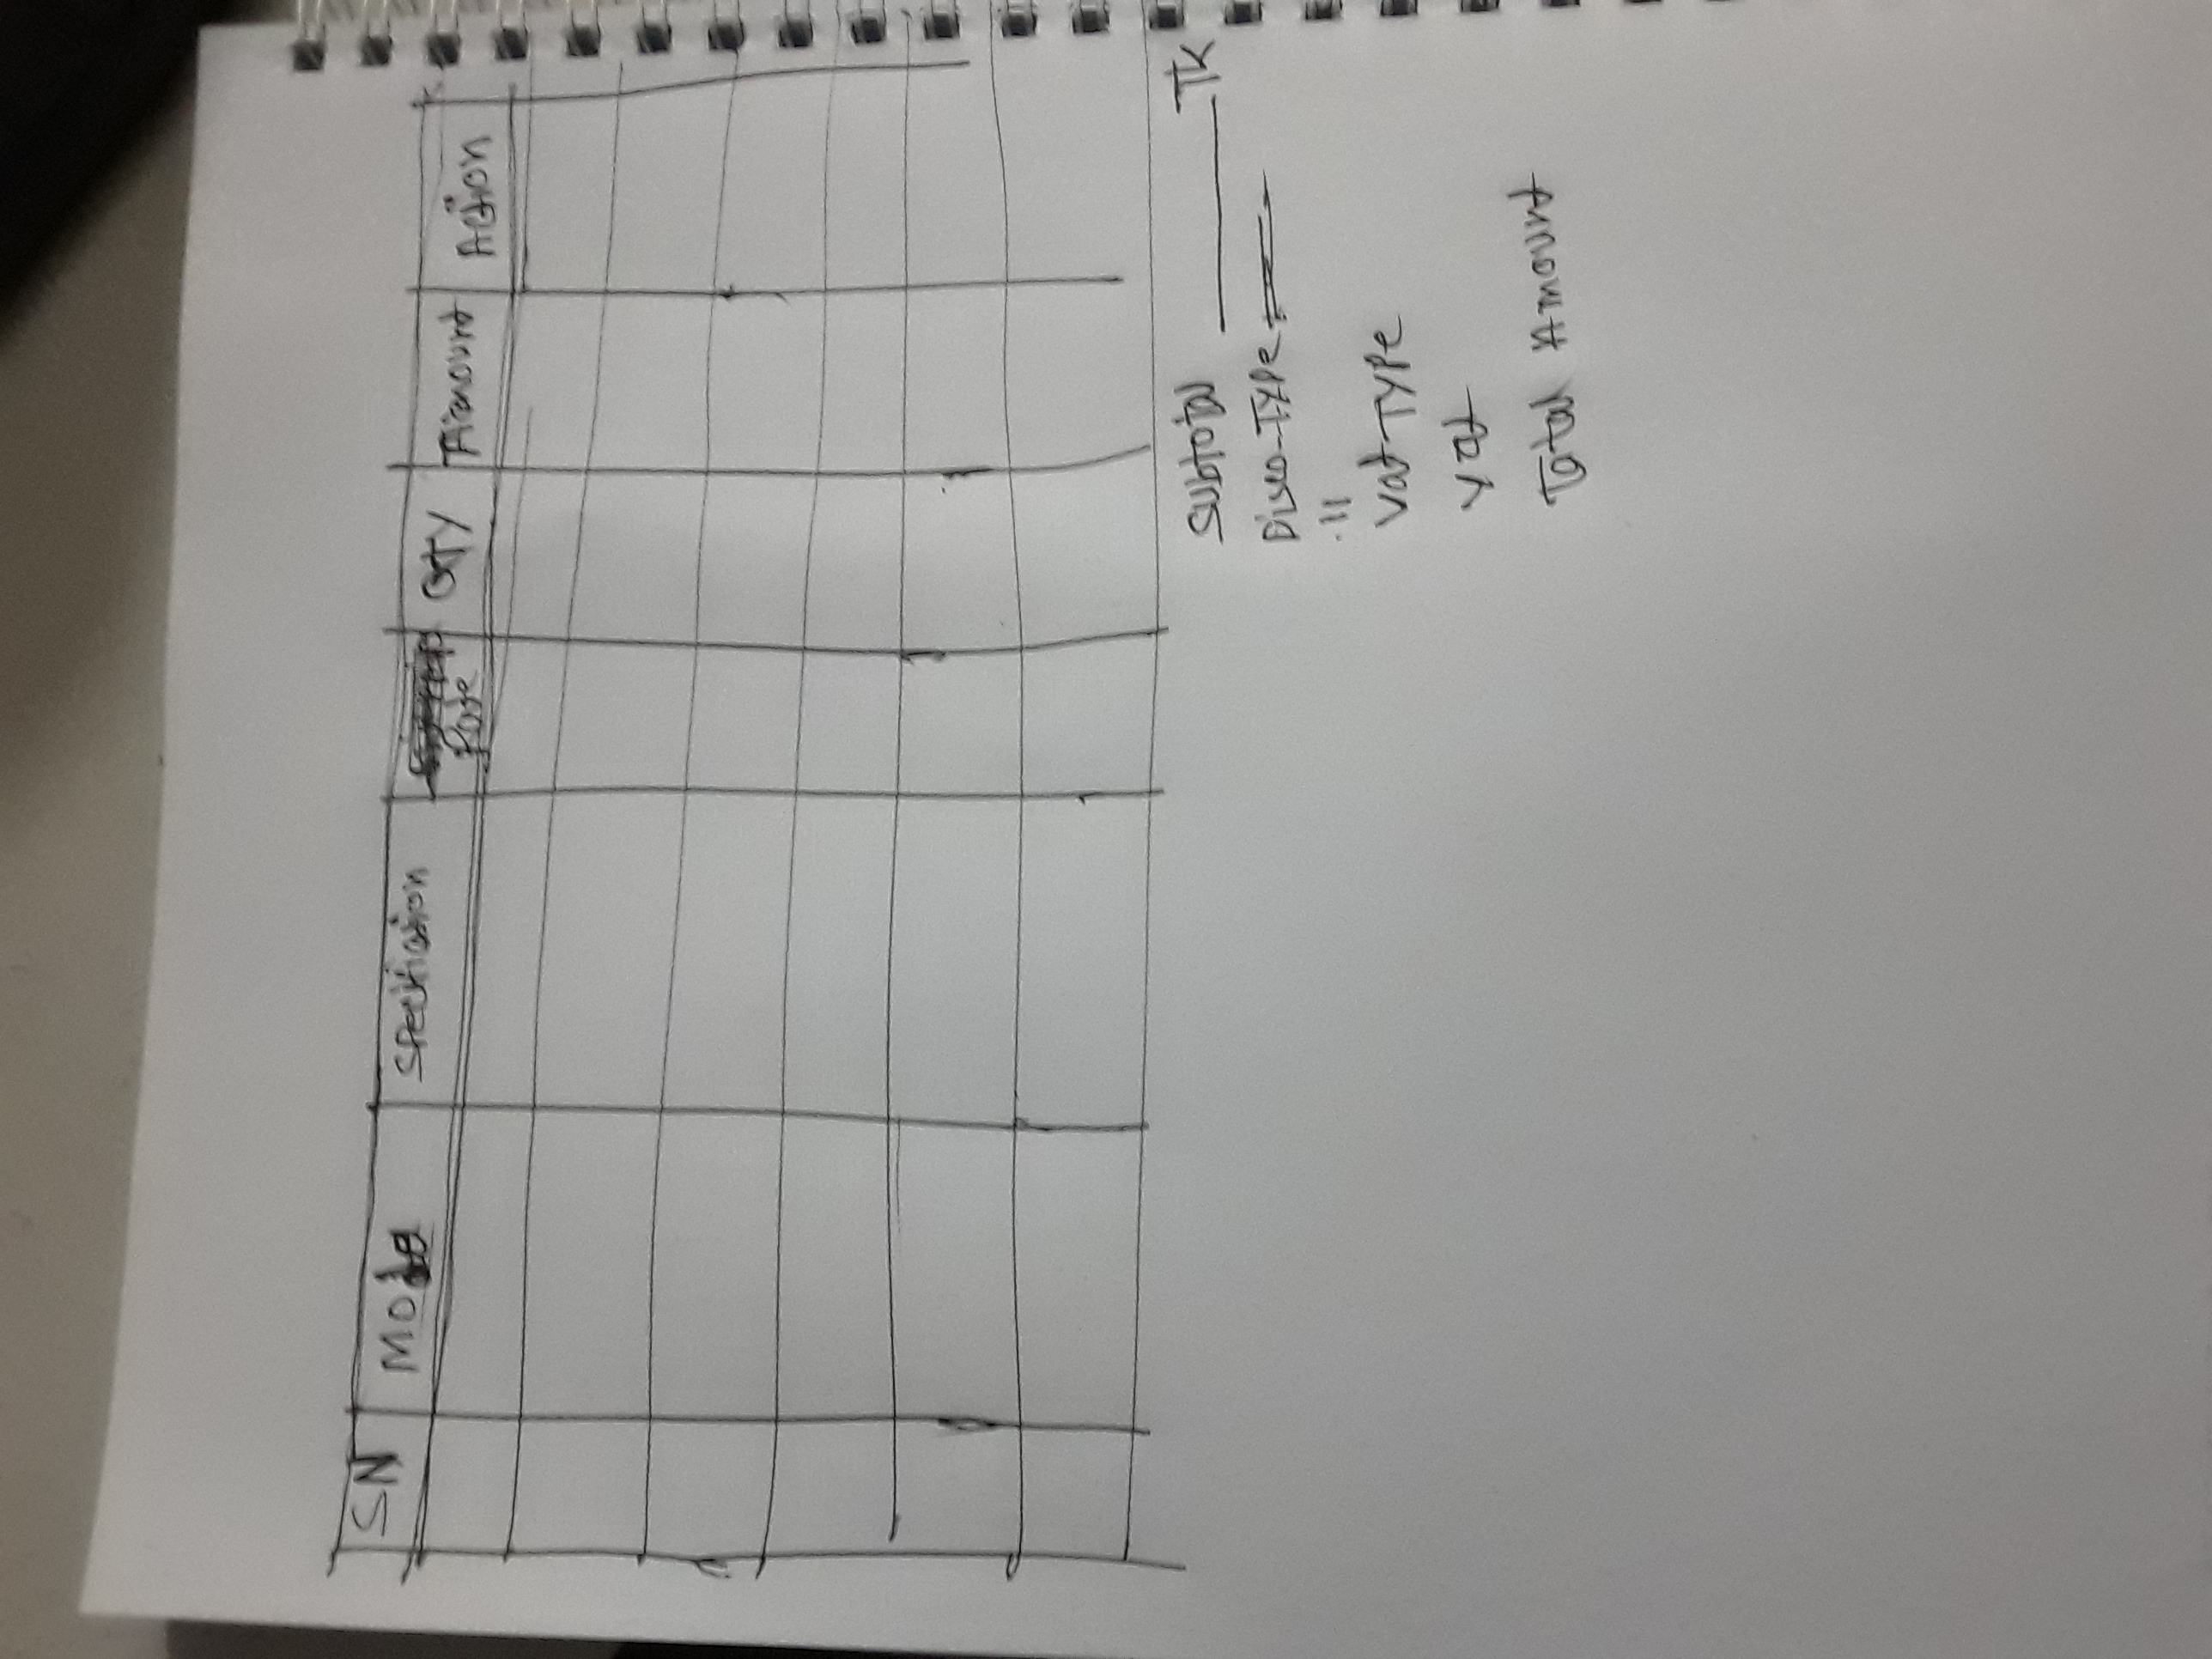 SN Specifiation QTY Amount Action
Subtotal ________ Tk
Disco-Type
.11
Vat Type
Vat
Total Amount